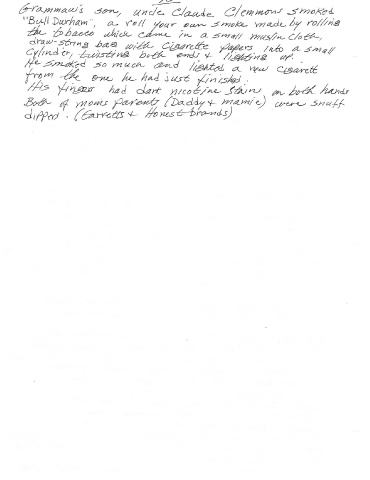 Grammaw's son, uncle Claude Clemmons smoked
"Bull Durham", a roll your own smoke made by rolling
the tobacco which came in a small muslin cloth,
draw-string bag with cigarette papers into a small
cylinder, twisting both ends & lighting up.
He smoked so much and lighted a new cigarett
from the one he had just finished.
His fingers had dark nicotine stain on both hands
Both of moms parents (Daddy & mamie) were snuff
dippers. (Garretts & Honest brands)